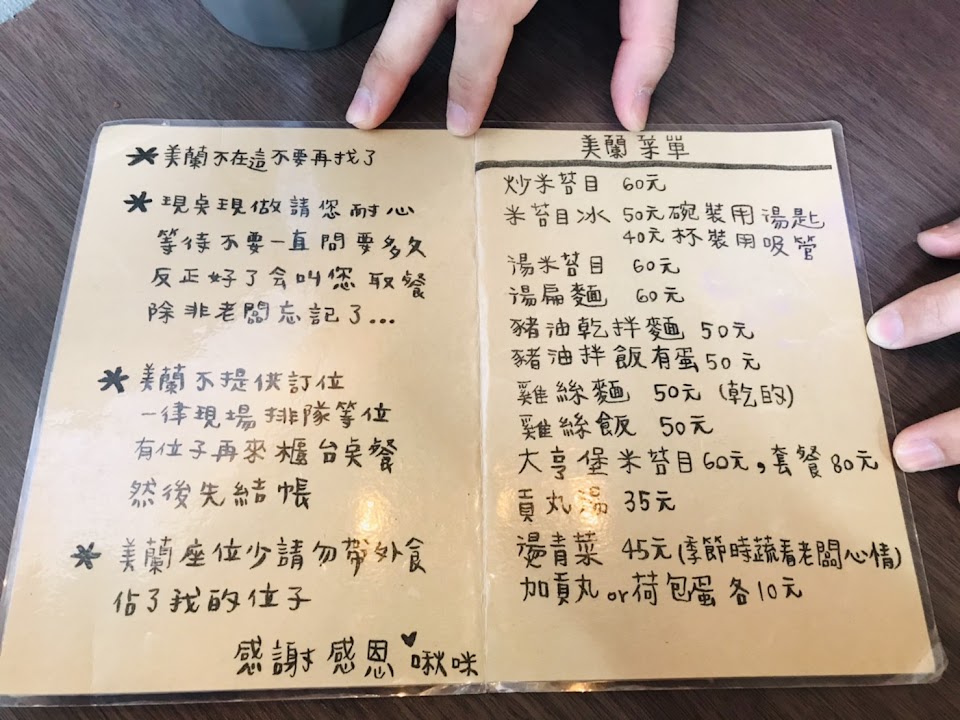 * 美蘭不在這不要再找了
* 現桌現做請您耐心
等待不要一直問要多久
反正好了会叫您取餐
除非老闆忘記了...
* 美蘭不提供訂位
一律現場排隊等位
有位子再來櫃台桌餐
然後先結帳
* 美蘭座位少請勿帶外食
佔了我的位子
感謝感恩♥啾咪
美蘭菜單
炒米苔目 60元
米苔目冰 50元碗裝用湯匙
40元杯裝用吸管
湯米苔目 60元
湯扁麵 60元
豬油乾拌麵 50元
豬油拌飯有蛋50元
雞絲麵 50元 (乾的)
雞絲飯 50元
大亨堡米苔目60元,套餐80元
貢丸湯 35元
燙青菜 45元(季節時蔬看老闆心情)
加貢丸or荷包蛋各10元